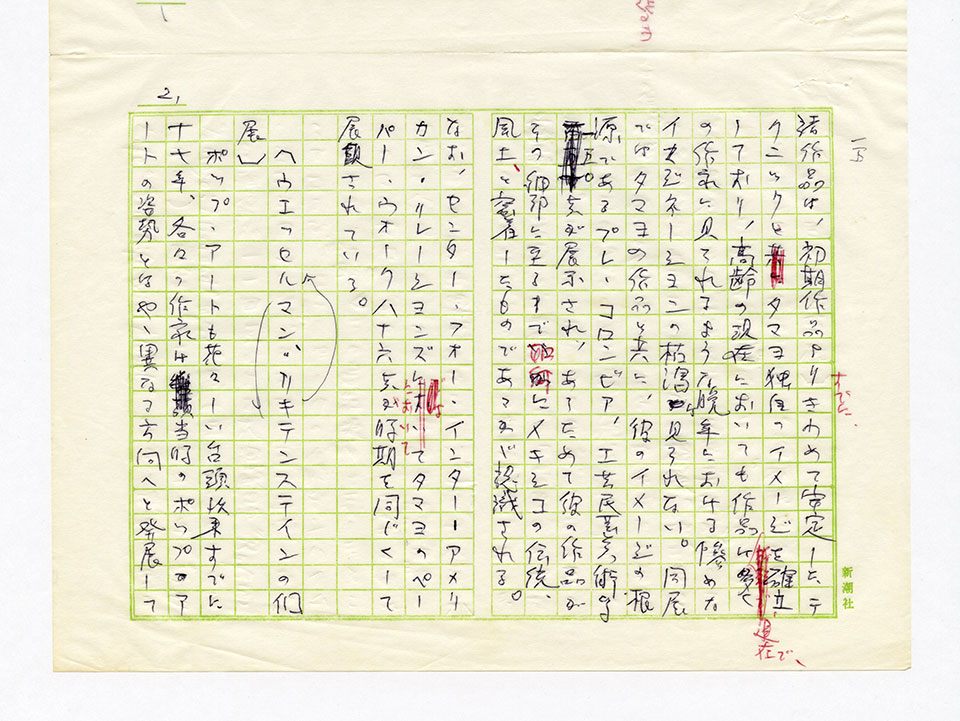 諸作品は、初期作品よりきわめて安定したテ
クニックとタマヨ独自のイメージを確立
しており、高齢の現在においても作品は多く
すでに
健在で、
の作家に見てれるような晩年における惨めな
イマジネーションの枯渇は見られない。同展
ではタマヨの作品と共に、彼のイメージの根
源であるプレ・コロンビア、工芸民芸美術等
一五〇点が展示され、あらためて彼の作品が
その細部に至るまでにメキシコの伝統、
風土、と密着したものであるかが認識される。
なお、センター・フォー・インター・アメリ
カン・リレーションズにおいてはタマヨのペー
パー・ウォーク八十六点が時期を同じくして
展観されている。
ウエッセルマン・リキテンステインの個
展
ポップ・アートも花々しい台頭以来すでに
十七年、各々の作家は当時のポップ・ア
ートの姿勢とはやゝ異なる方向へと発展して
2,
新潮社